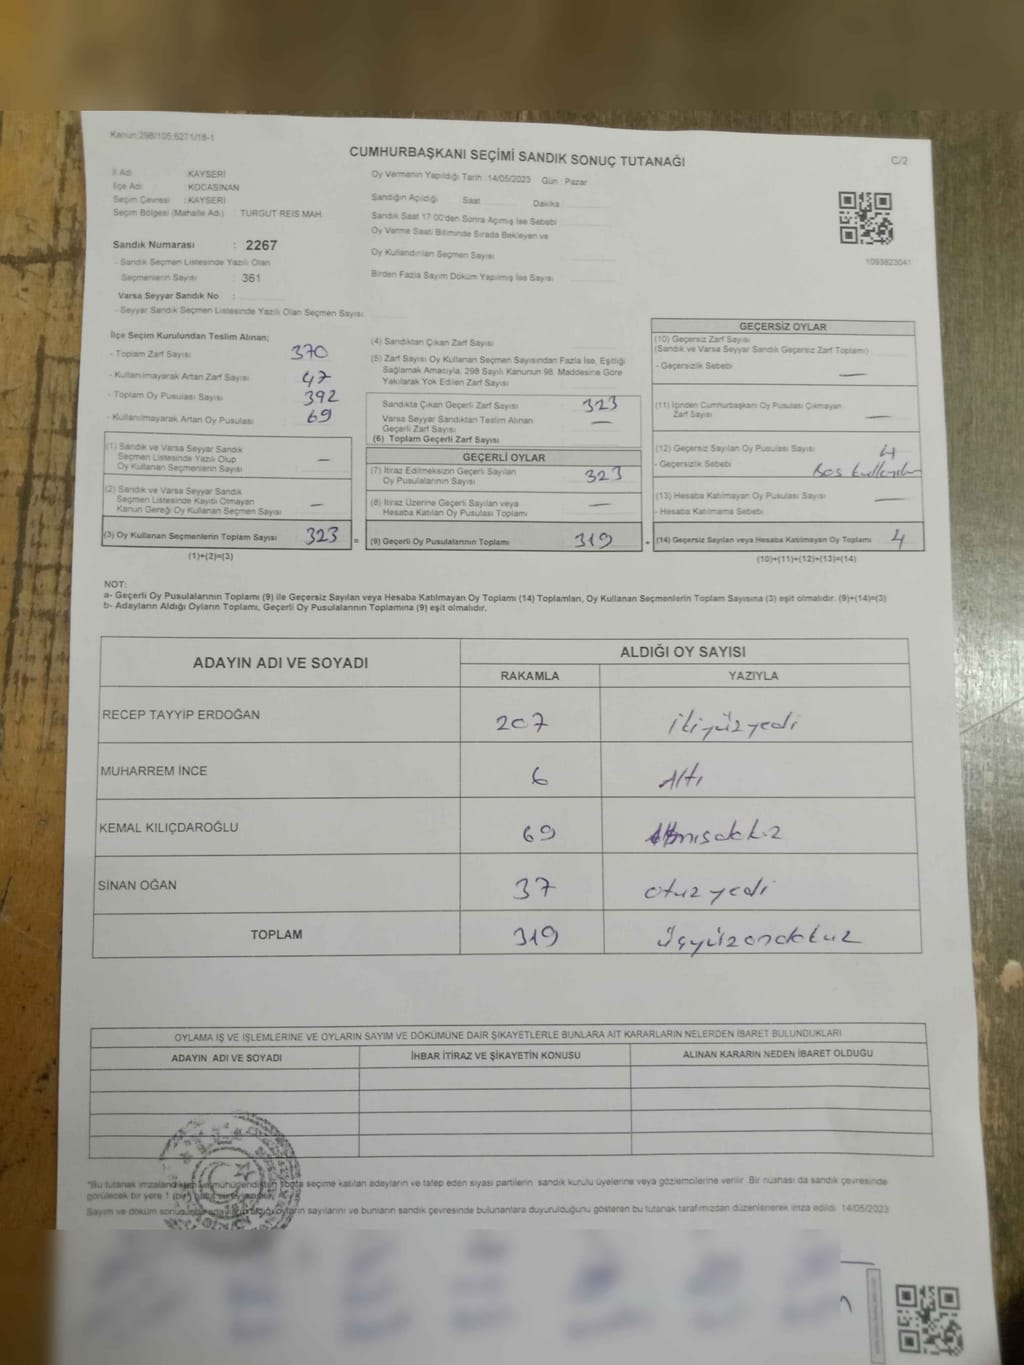 Kanun:298/105;6271/18-1
CUMHURBAŞKANI SEÇİMİ SANDIK SONUÇ TUTANAĞI
C/2
İl Adı KAYSERİ
İlçe Adı KOCASİNAN
Seçim Çevresi :KAYSERİ
Seçim Bölgesi (Mahalle Adı) TURGUT REİS MAH.
Sandık Numarası : 2267
- Sandık Seçmen Listesinde Yazılı Olan
Seçmenlerin Sayısı : 361
Varsa Seyyar Sandık No :
- Seyyar Sandık Seçmen Listesinde Yazılı Olan Seçmen Sayısı:
Oy Vermenin Yapıldığı Tarih :14/05/2023 Gün : Pazar
Sandığın Açıldığı Saat Dakika
Sandık Saat 17:00'den Sonra Açılmış İse Sebebi
Oy Verme Saati Bitiminde Sırada Bekleyen ve
Oy Kullandırılan Seçmen Sayısı
Birden Fazla Sayım Döküm Yapılmış İse Sayısı
1093823041
İlçe Seçim Kurulundan Teslim Alınan;
- Toplam Zarf Sayısı 370
- Kullanılmayarak Artan Zarf Sayısı 47
- Toplam Oy Pusulası Sayısı 392
- Kullanılmayarak Artan Oy Pusulası 69
(1) Sandık ve Varsa Seyyar Sandık
Seçmen Listesinde Yazılı Olup
Oy Kullanan Seçmenlerin Sayısı —
(2) Sandık ve Varsa Seyyar Sandık
Seçmen Listesinde Kayıtlı Olmayan
Kanun Gereği Oy Kullanan Seçmen Sayısı —
(3) Oy Kullanan Seçmenlerin Toplam Sayısı 323
(1)+(2)=(3)
(4) Sandıktan Çıkan Zarf Sayısı
(5) Zarf Sayısı Oy Kullanan Seçmen Sayısından Fazla İse, Eşitliği
Sağlamak Amacıyla, 298 Sayılı Kanunun 98. Maddesine Göre
Yakılarak Yok Edilen Zarf Sayısı
Sandıkta Çıkan Geçerli Zarf Sayısı 323
Varsa Seyyar Sandıktan Teslim Alınan
Geçerli Zarf Sayısı —
(6) Toplam Geçerli Zarf Sayısı
GEÇERLİ OYLAR
(7) İtiraz Edilmeksizin Geçerli Sayılan
Oy Pusulalarının Sayısı 323
(8) İtiraz Üzerine Geçerli Sayılan veya
Hesaba Katılan Oy Pusulası Toplamı —
= (9) Geçerli Oy Pusulalarının Toplamı 319
GEÇERSİZ OYLAR
(10) Geçersiz Zarf Sayısı
(Sandık ve Varsa Seyyar Sandık Geçersiz Zarf Toplamı)
- Geçersizlik Sebebi —
(11) İçinden Cumhurbaşkanı Oy Pusulası Çıkmayan
Zarf Sayısı —
(12) Geçersiz Sayılan Oy Pusulası Sayısı 4
- Geçersizlik Sebebi Boş
(13) Hesaba Katılmayan Oy Pusulası Sayısı —
- Hesaba Katılmama Sebebi
+ (14) Geçersiz Sayılan veya Hesaba Katılmayan Oy Toplamı 4
(10)+(11)+(12)+(13)=(14)
NOT:
a- Geçerli Oy Pusulalarının Toplamı (9) ile Geçersiz Sayılan veya Hesaba Katılmayan Oy Toplamı (14) Toplamları, Oy Kullanan Seçmenlerin Toplam Sayısına (3) eşit olmalıdır. (9)+(14)=(3)
b- Adayların Aldığı Oyların Toplamı, Geçerli Oy Pusulalarının Toplamına (9) eşit olmalıdır.
ADAYIN ADI VE SOYADI ALDIĞI OY SAYISI
RAKAMLA YAZIYLA
RECEP TAYYİP ERDOĞAN 207 ikiyüzyedi
MUHARREM İNCE 6 Altı
KEMAL KILIÇDAROĞLU 69
SİNAN OĞAN 37 otuzyedi
TOPLAM 319 üçyüzondokuz
OYLAMA İŞ VE İŞLEMLERİNE VE OYLARIN SAYIM VE DÖKÜMÜNE DAİR ŞİKAYETLERLE BUNLARA AİT KARARLARIN NELERDEN İBARET BULUNDUKLARI
ADAYIN ADI VE SOYADI İHBAR İTİRAZ VE ŞİKAYETİN KONUSU ALINAN KARARIN NEDEN İBARET OLDUĞU
*Bu tutanak sonra seçime katılan adayların ve talep eden siyasi partilerin sandık kurulu üyelerine veya gözlemcilerine verilir. Bir nüshası da sandık çevresinde
görülecek bir yere 1 (bir)
Sayım ve döküm oyların sayılarını ve bunların sandık çevresinde bulunanlara duyurulduğunu gösteren bu tutanak tarafımızdan düzenlenerek imza edildi. 14/05/2023